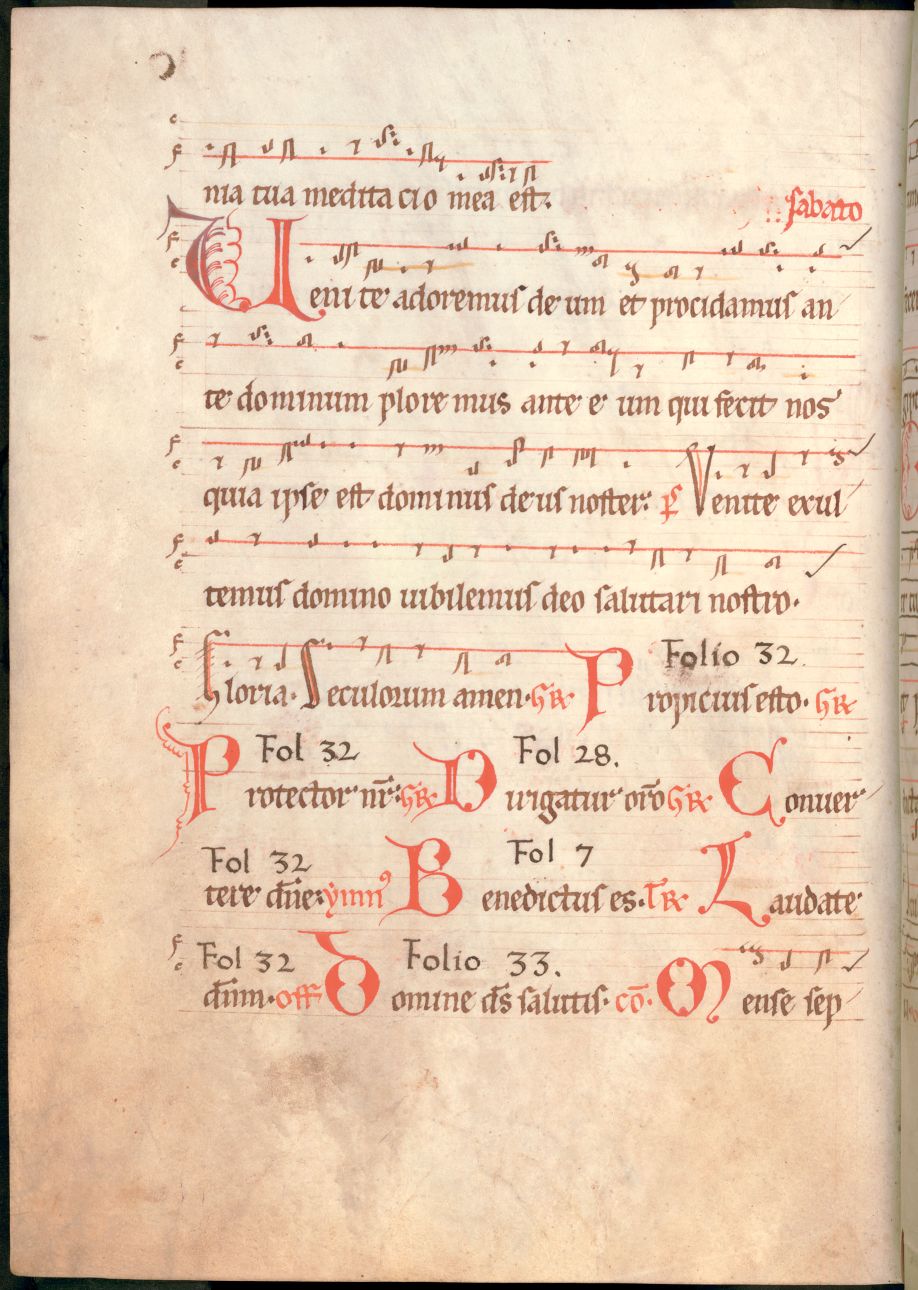 nia tua meditacio mea est.
sabato
Venite adoremus deum et procidamus an
te dominum ploremus ante eum qui fecit nos
quia ipse est dominus deus noster. ps Venite exul
temus domino iubilemus deo salutari nostro.
Folio 32.
Gloria. Seculorum amen. GR Propicius esto. GR
Fol 32 Fol 28.
Protector nr̄. GR Dirigatur orō GR Conver
Fol 32 Fol 7
tere dn̄e. ymn⁹ Benedictus es. TR Laudate
Fol 32 Folio 33.
dn̄m. off Domine ds̄ salutis. cō. Mense sep